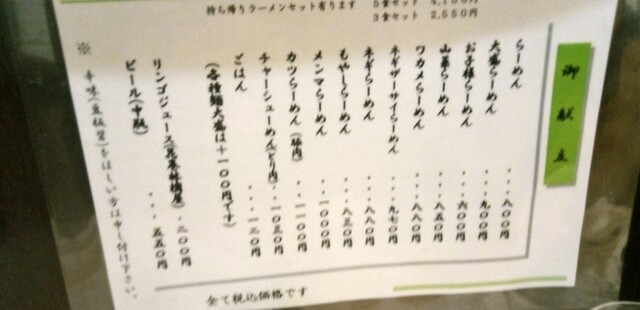 持ち帰りラーメンセット有ります
5食セット 4,100円
3食セット 2,550円
御献立
らーめん・・・八〇〇円
大盛らーめん・・・九〇〇円
お子様らーめん・・・六〇〇円
山菜らーめん・・・八五〇円
ワカメらーめん・・・八八〇円
ネギザーサイらーめん・・・九七〇円
ネギらーめん・・・八八〇円
もやしらーめん・・・八三〇円
メンマらーめん・・・一〇〇〇円
カツらーめん(豚肉)・・・一一〇〇円
チャーシューめん(とり肉)・・・一〇五〇円
ごはん・・・一二〇円
(各種麺大盛は+一〇〇円です)
リンゴジュース(花巻林檎屋)・二〇〇円
ビール(中瓶)・・・五五〇円
※辛味(豆板醤)をほしい方は申し付け下さい。
全て税込価格です